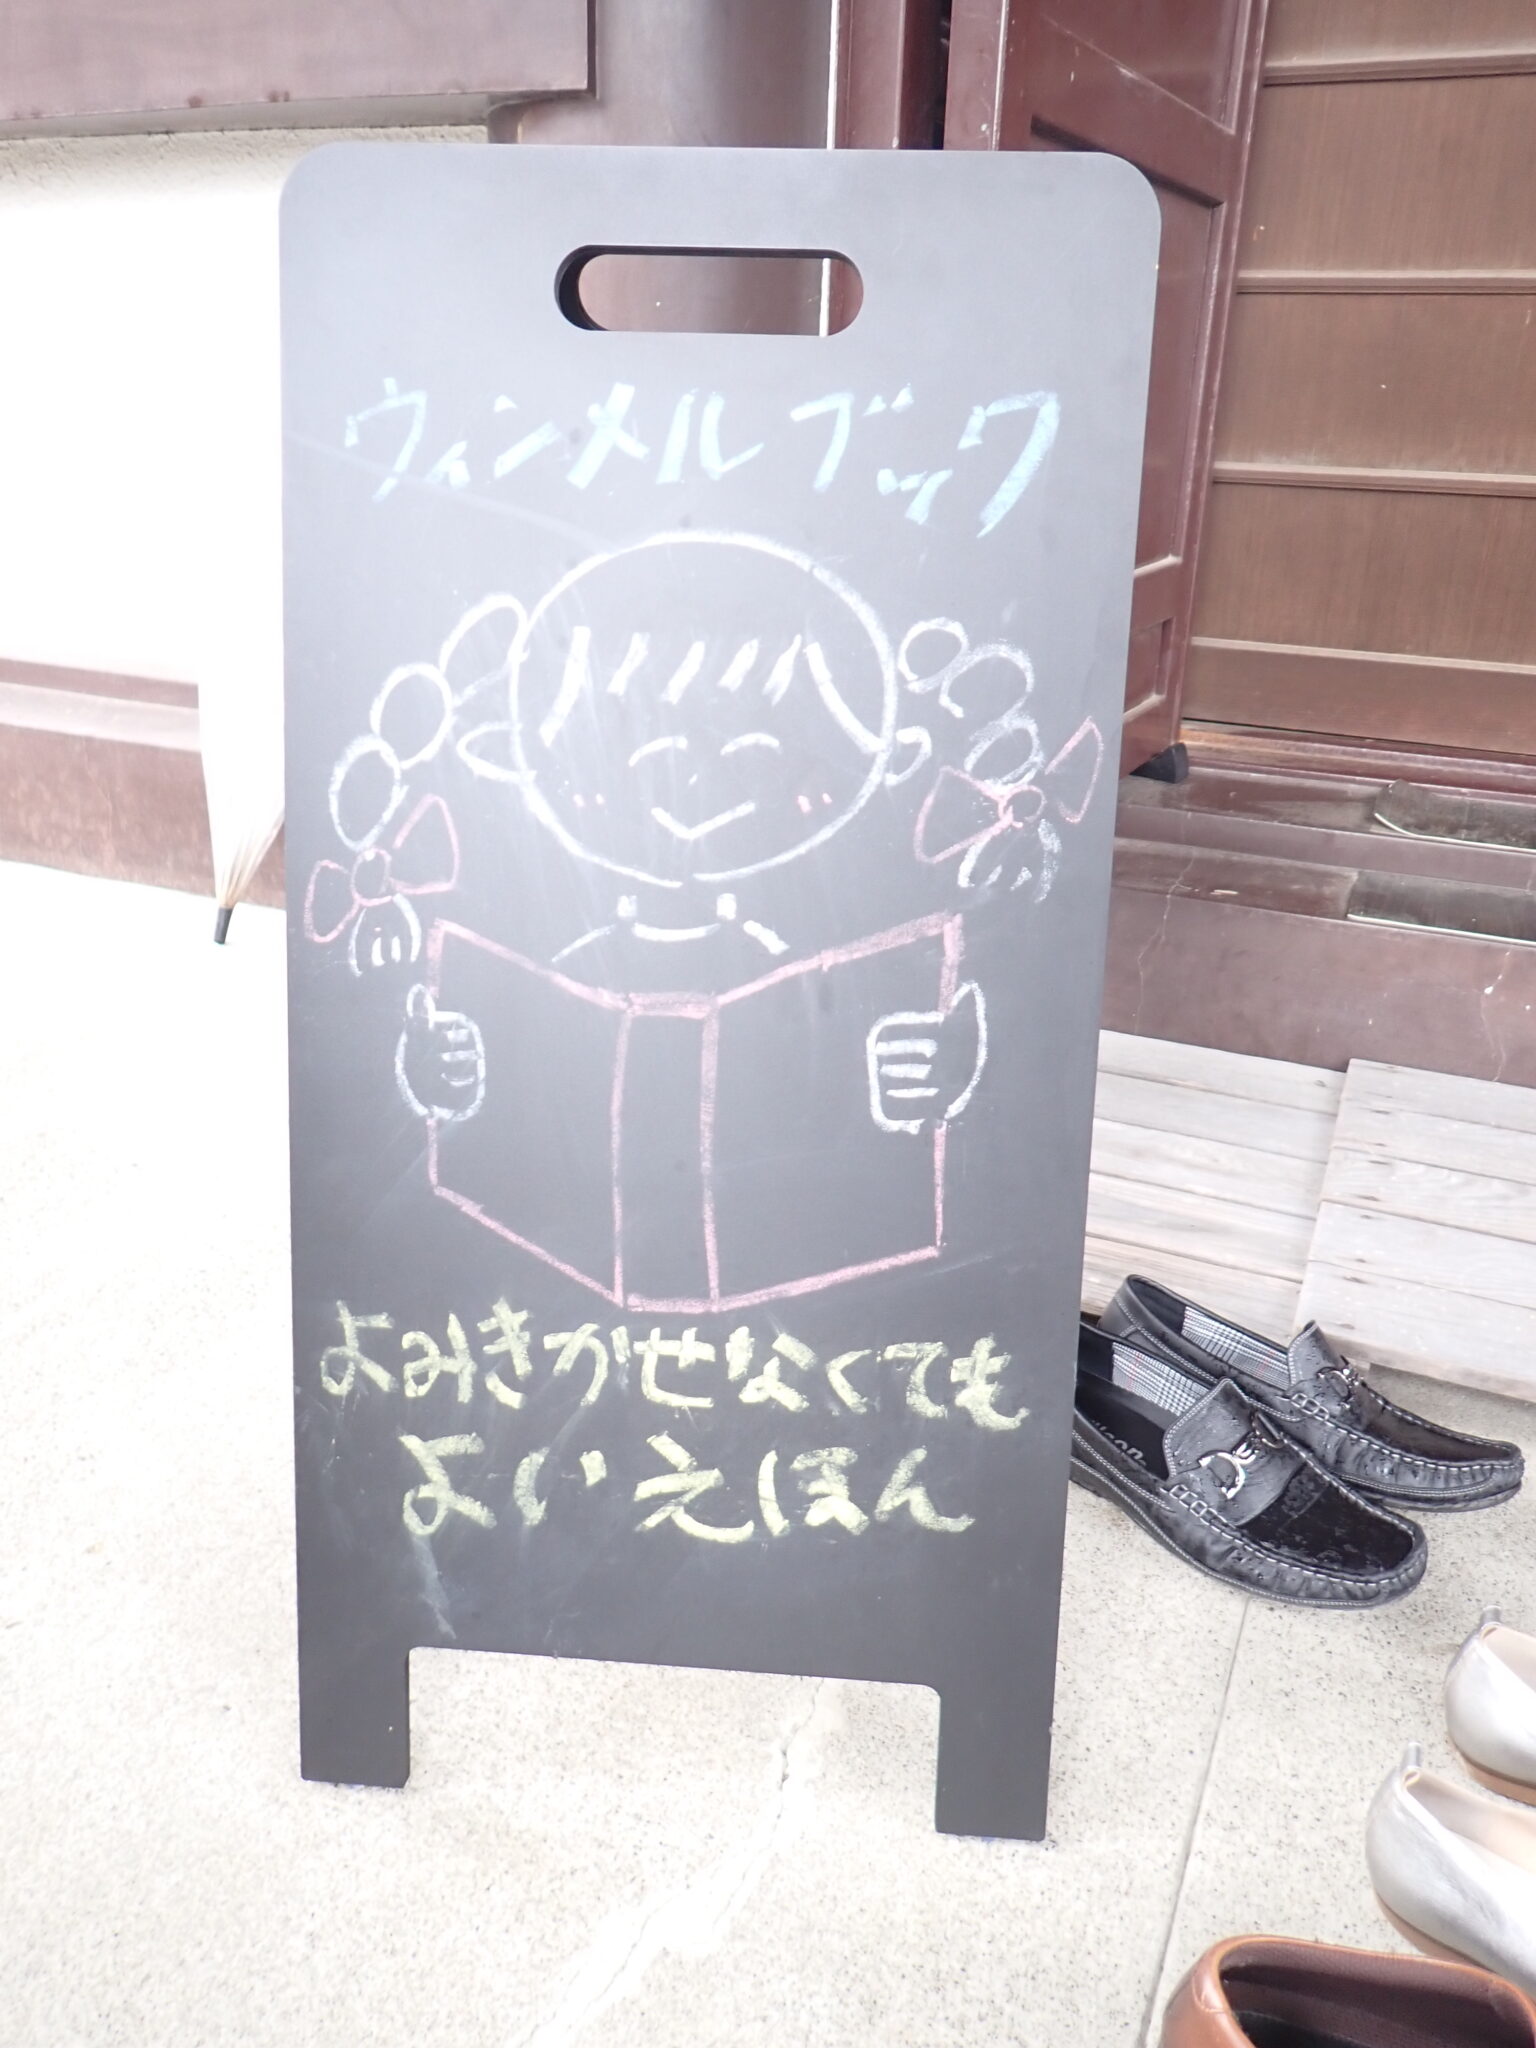 ウィンメルブック
よみきかせなくても
よいえほん